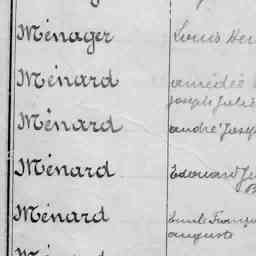 Ménager Louis Hen
Ménard amédée
Joseph Jules
Ménard andré Josep
Ménard Edouard Ju
Ménard Emile Franço
auguste
Ménard